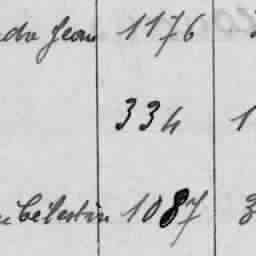 Jean 1176
334 1
Célestin 1087 3